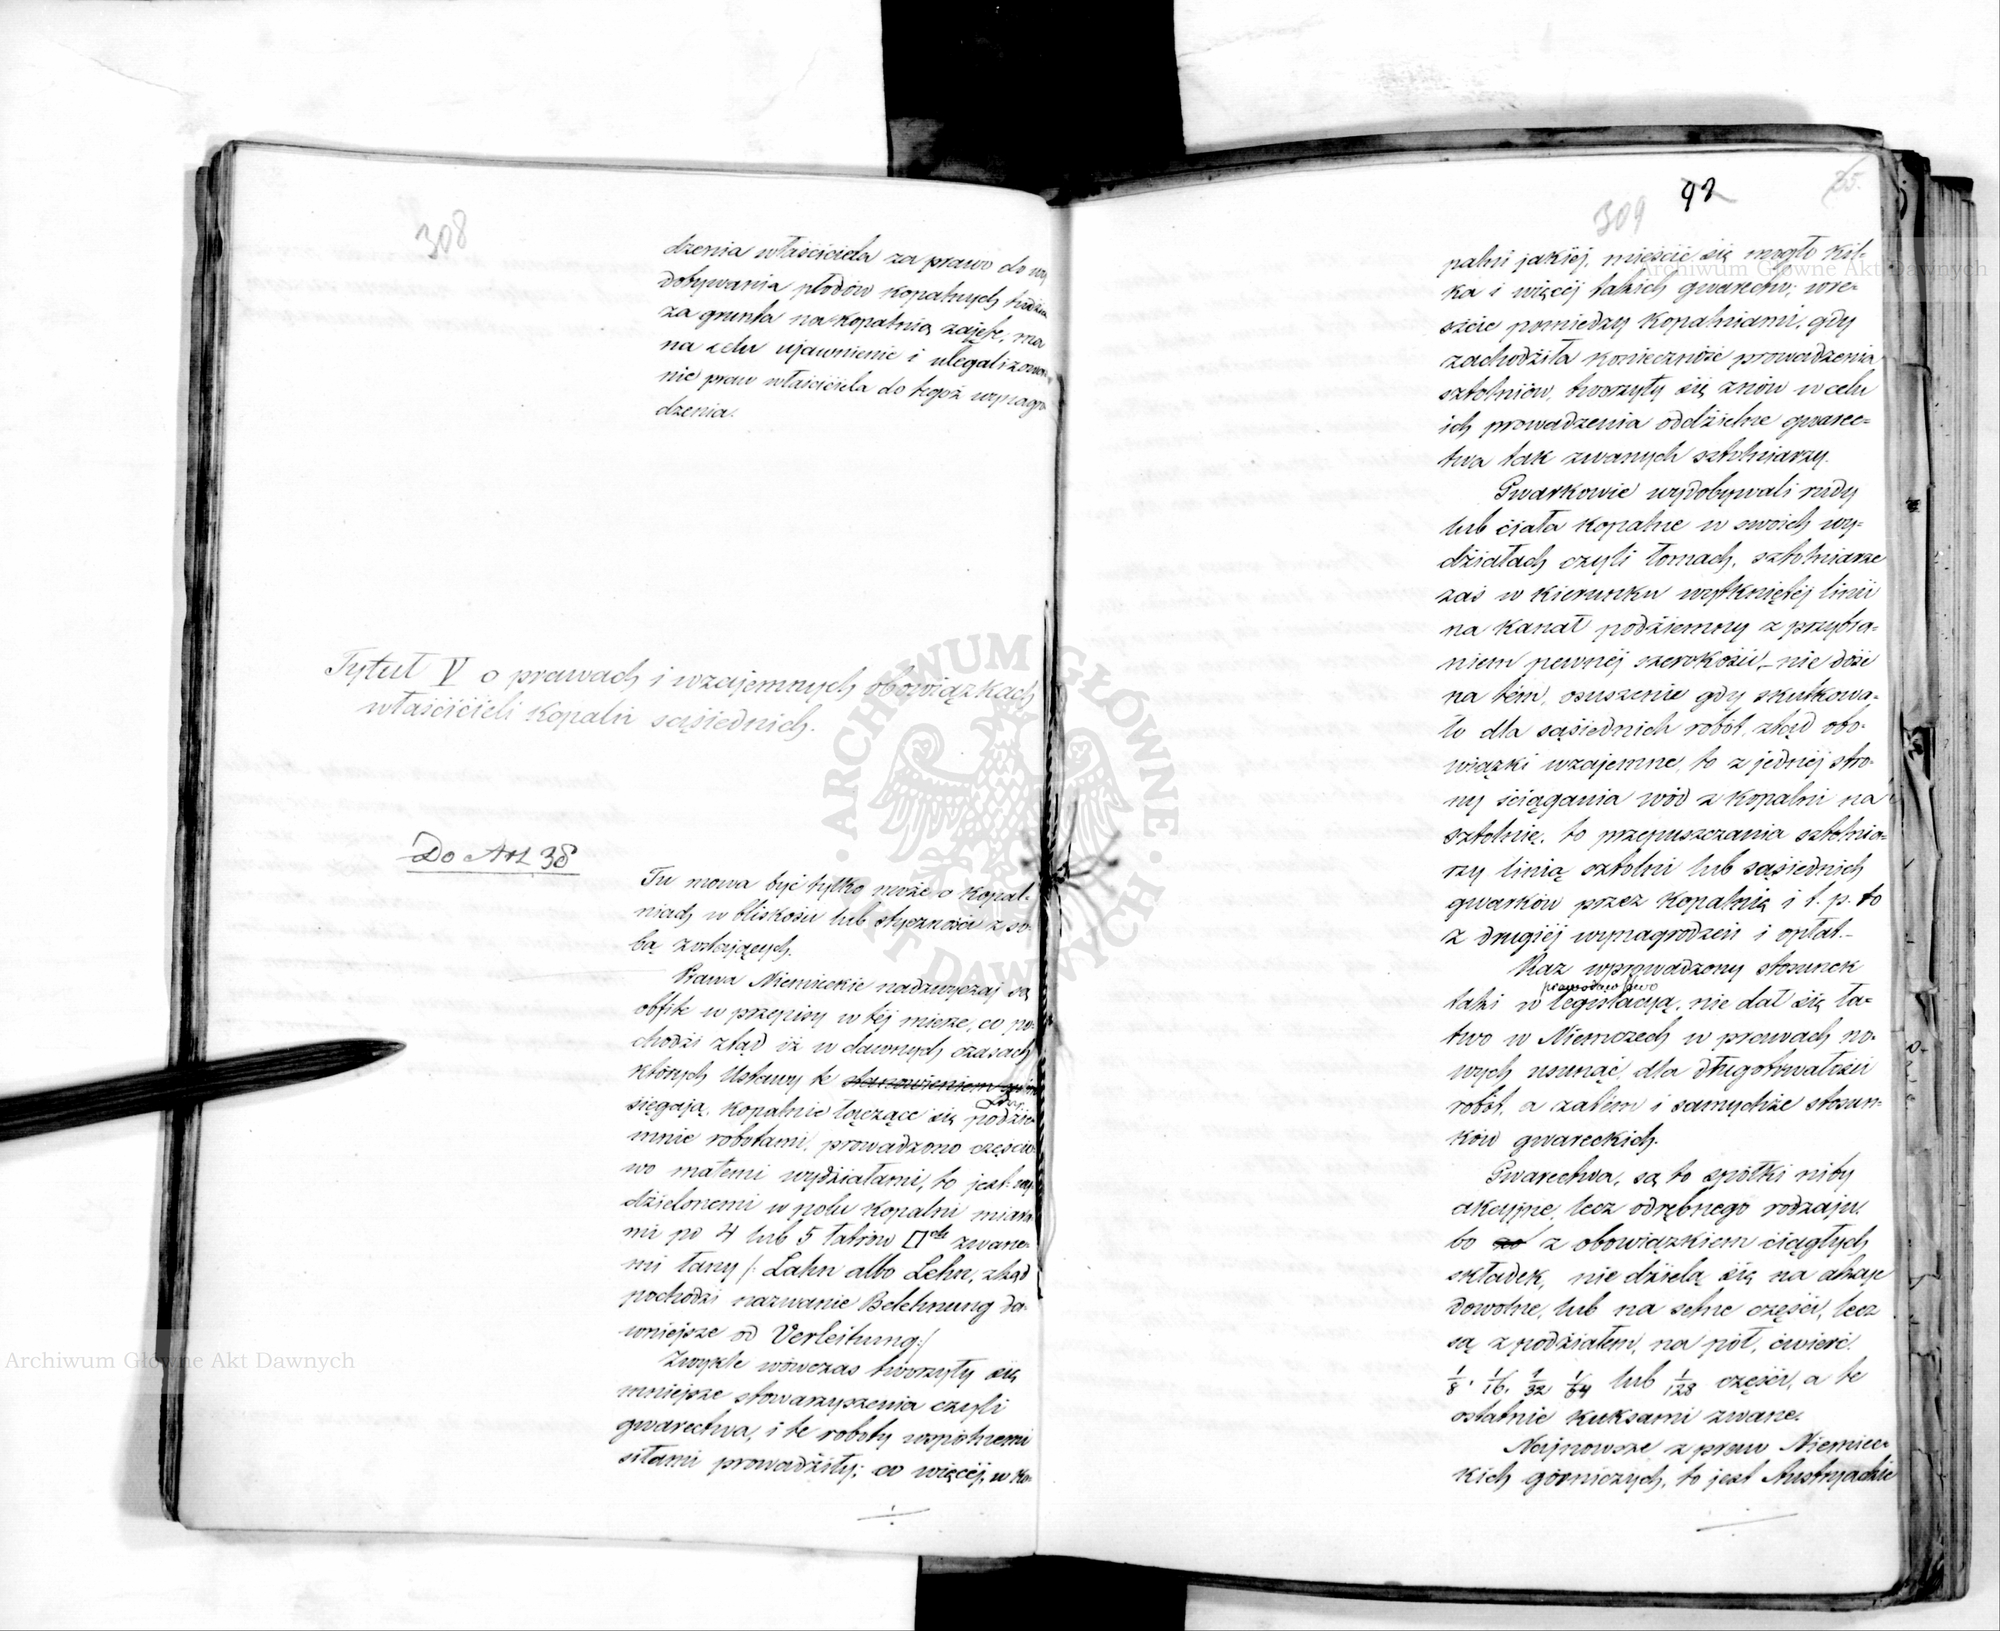 308
dzenia właściciela za prawo do wy
dobywania płodów kopalnych tudzież
za grunta na kopalnią zajęte, ma
na celu ujawnienie i ulegalizowa-
nie praw właściciela do tegoż wynagro
dzenia.
Tytuł V o prawach i wzajemnych obowiązkach
właścicieli kopalń sąsiednich.
Do Art. 38
Tu mowa być tylko może o kopal-
niach w bliskości lub styczności z so-
bą zostających.
Prawa Niemieckie nadzwyczaj są
obfite w przepisy w téj mierze, co po-
chodzi ztąd iż w dawnych czasach
których Ustawy te stanowieniem
sięgają, kopalnie łączące się podzie-
mnie robotami, prowadzono częścio-
wo małemi wydziałami, to jest wy-
dzielonemi w polu kopalni miara-
mi po 4 lub 5 łatrów □ zwane-
mi łany /: Lahn albo Lehn, zkąd
pochodzi nazwanie Belehnung da-
wniejsze od Verleihung:/
Zwykle wówczas tworzyły się
mniejsze stowarzyszenia czyli
gwarectwa, i te roboty wspólnemi
siłami prowadziły; co więcéj, w ko-
309
92
palni jakiéj, mieście się mogło kil-
ka i więcéj takich gwarectw; wre-
szcie pomiędzy kopalniami, gdy
zachodziła konieczność prowadzenia
sztolniów, tworzyły się znów w celu
ich prowadzenia oddzielne gwarec-
twa tak zwanych sztolniarzy.
Gwarkowie wydobywali rudy
lub ciała kopalne w swoich wy-
działach czyli łomach, sztolniarze
zaś w kierunku wytkniętéj linii
na kanał podziemny z przybra-
niem pewnéj szerokości,– nie dość
na tém, osuszenie gdy skutkowa-
ło dla sąsiednich robót, ztąd obo-
wiązki wzajemne, to z jednéj stro-
ny ściągania wód z kopalni na
sztolnię, to przepuszczania sztolnia-
rzy linią sztolni lub sąsiednich
gwarków przez kopalnią i t. p. to
z drugiéj wynagrodzeń i opłat.–
Raz wprowadzony stosunek
prawodawstwo
taki w legislacją, nie dał się ła-
two w Niemczech w prawach no-
wych usunąć, dla długotrwałości
robót, a zatém i samychże stosun-
ków gwareckich.
Gwarectwa, są to spółki niby
akcyjne, lecz odrębnego rodzaju,
bo z obowiązkiem ciągłych
składek, nie dzielą się na akcye
dowolne, lub na setne części, lecz
są z podziałem, na pół, ćwierć,
1/8. 1/16. 1/32 1/64 lub 1/128 części, a te
ostatnie kuksami zwane.
Najnowsze z praw Niemiec-
kich górniczych, to jest Austryackie
ARCHIWUM GŁÓWNE AKT DAWNYCH
Archiwum Główne Akt Dawnych
Archiwum Główne Akt Dawnych